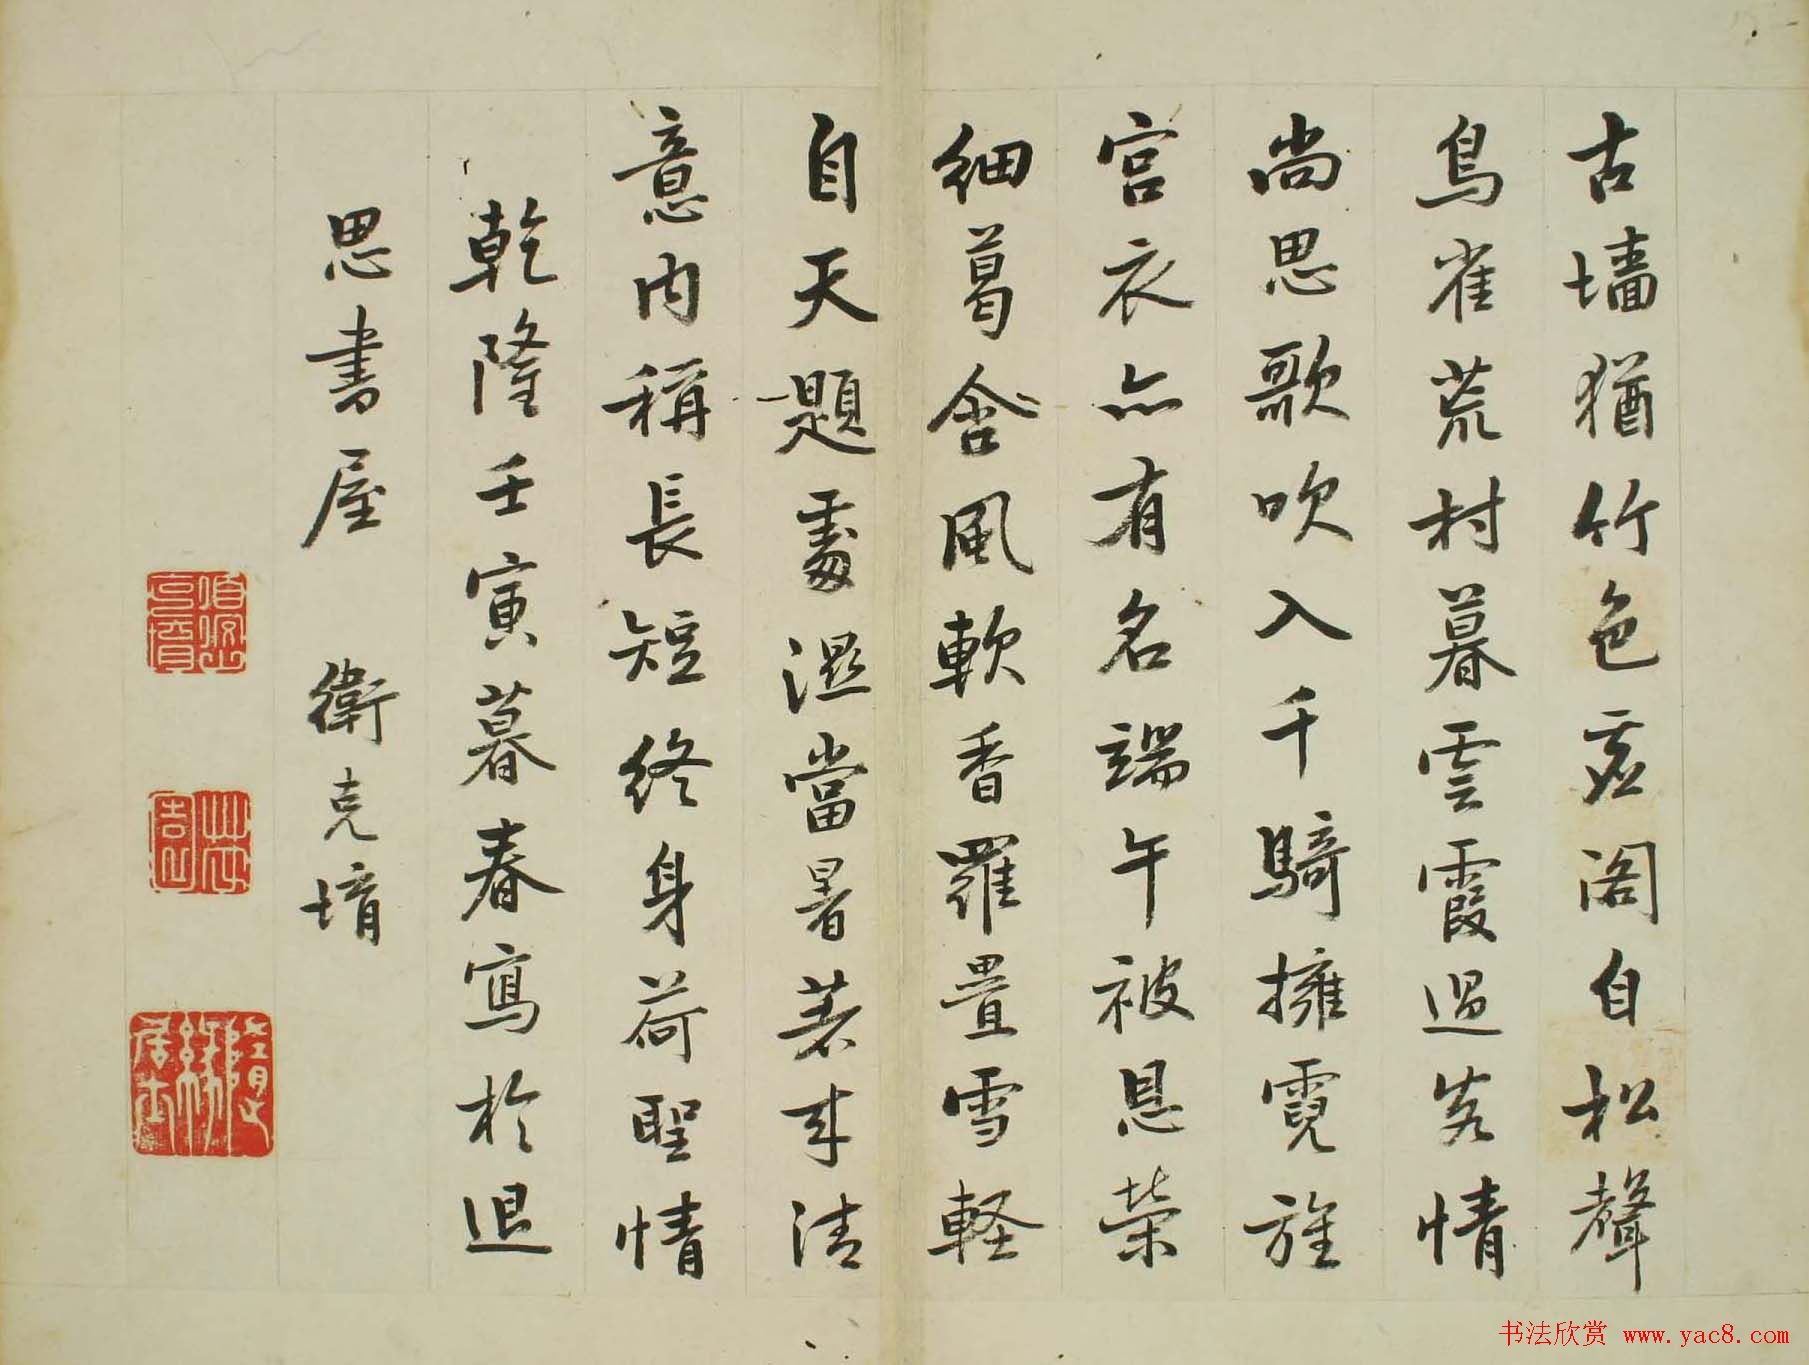 古墙猶竹色虚阁自松聲
鳥雀荒村暮雲霞過客情
尚思歌吹入千騎擁霓旌
宫衣亦有名端午被恩榮
细葛含風軟香羅疊雪軽
自天題處濕當暑著来清
意内稱長短终身荷聖情
乾隆壬寅暮春寫於退
思書屋 衛克堉
书法欣赏 www.yac8.com